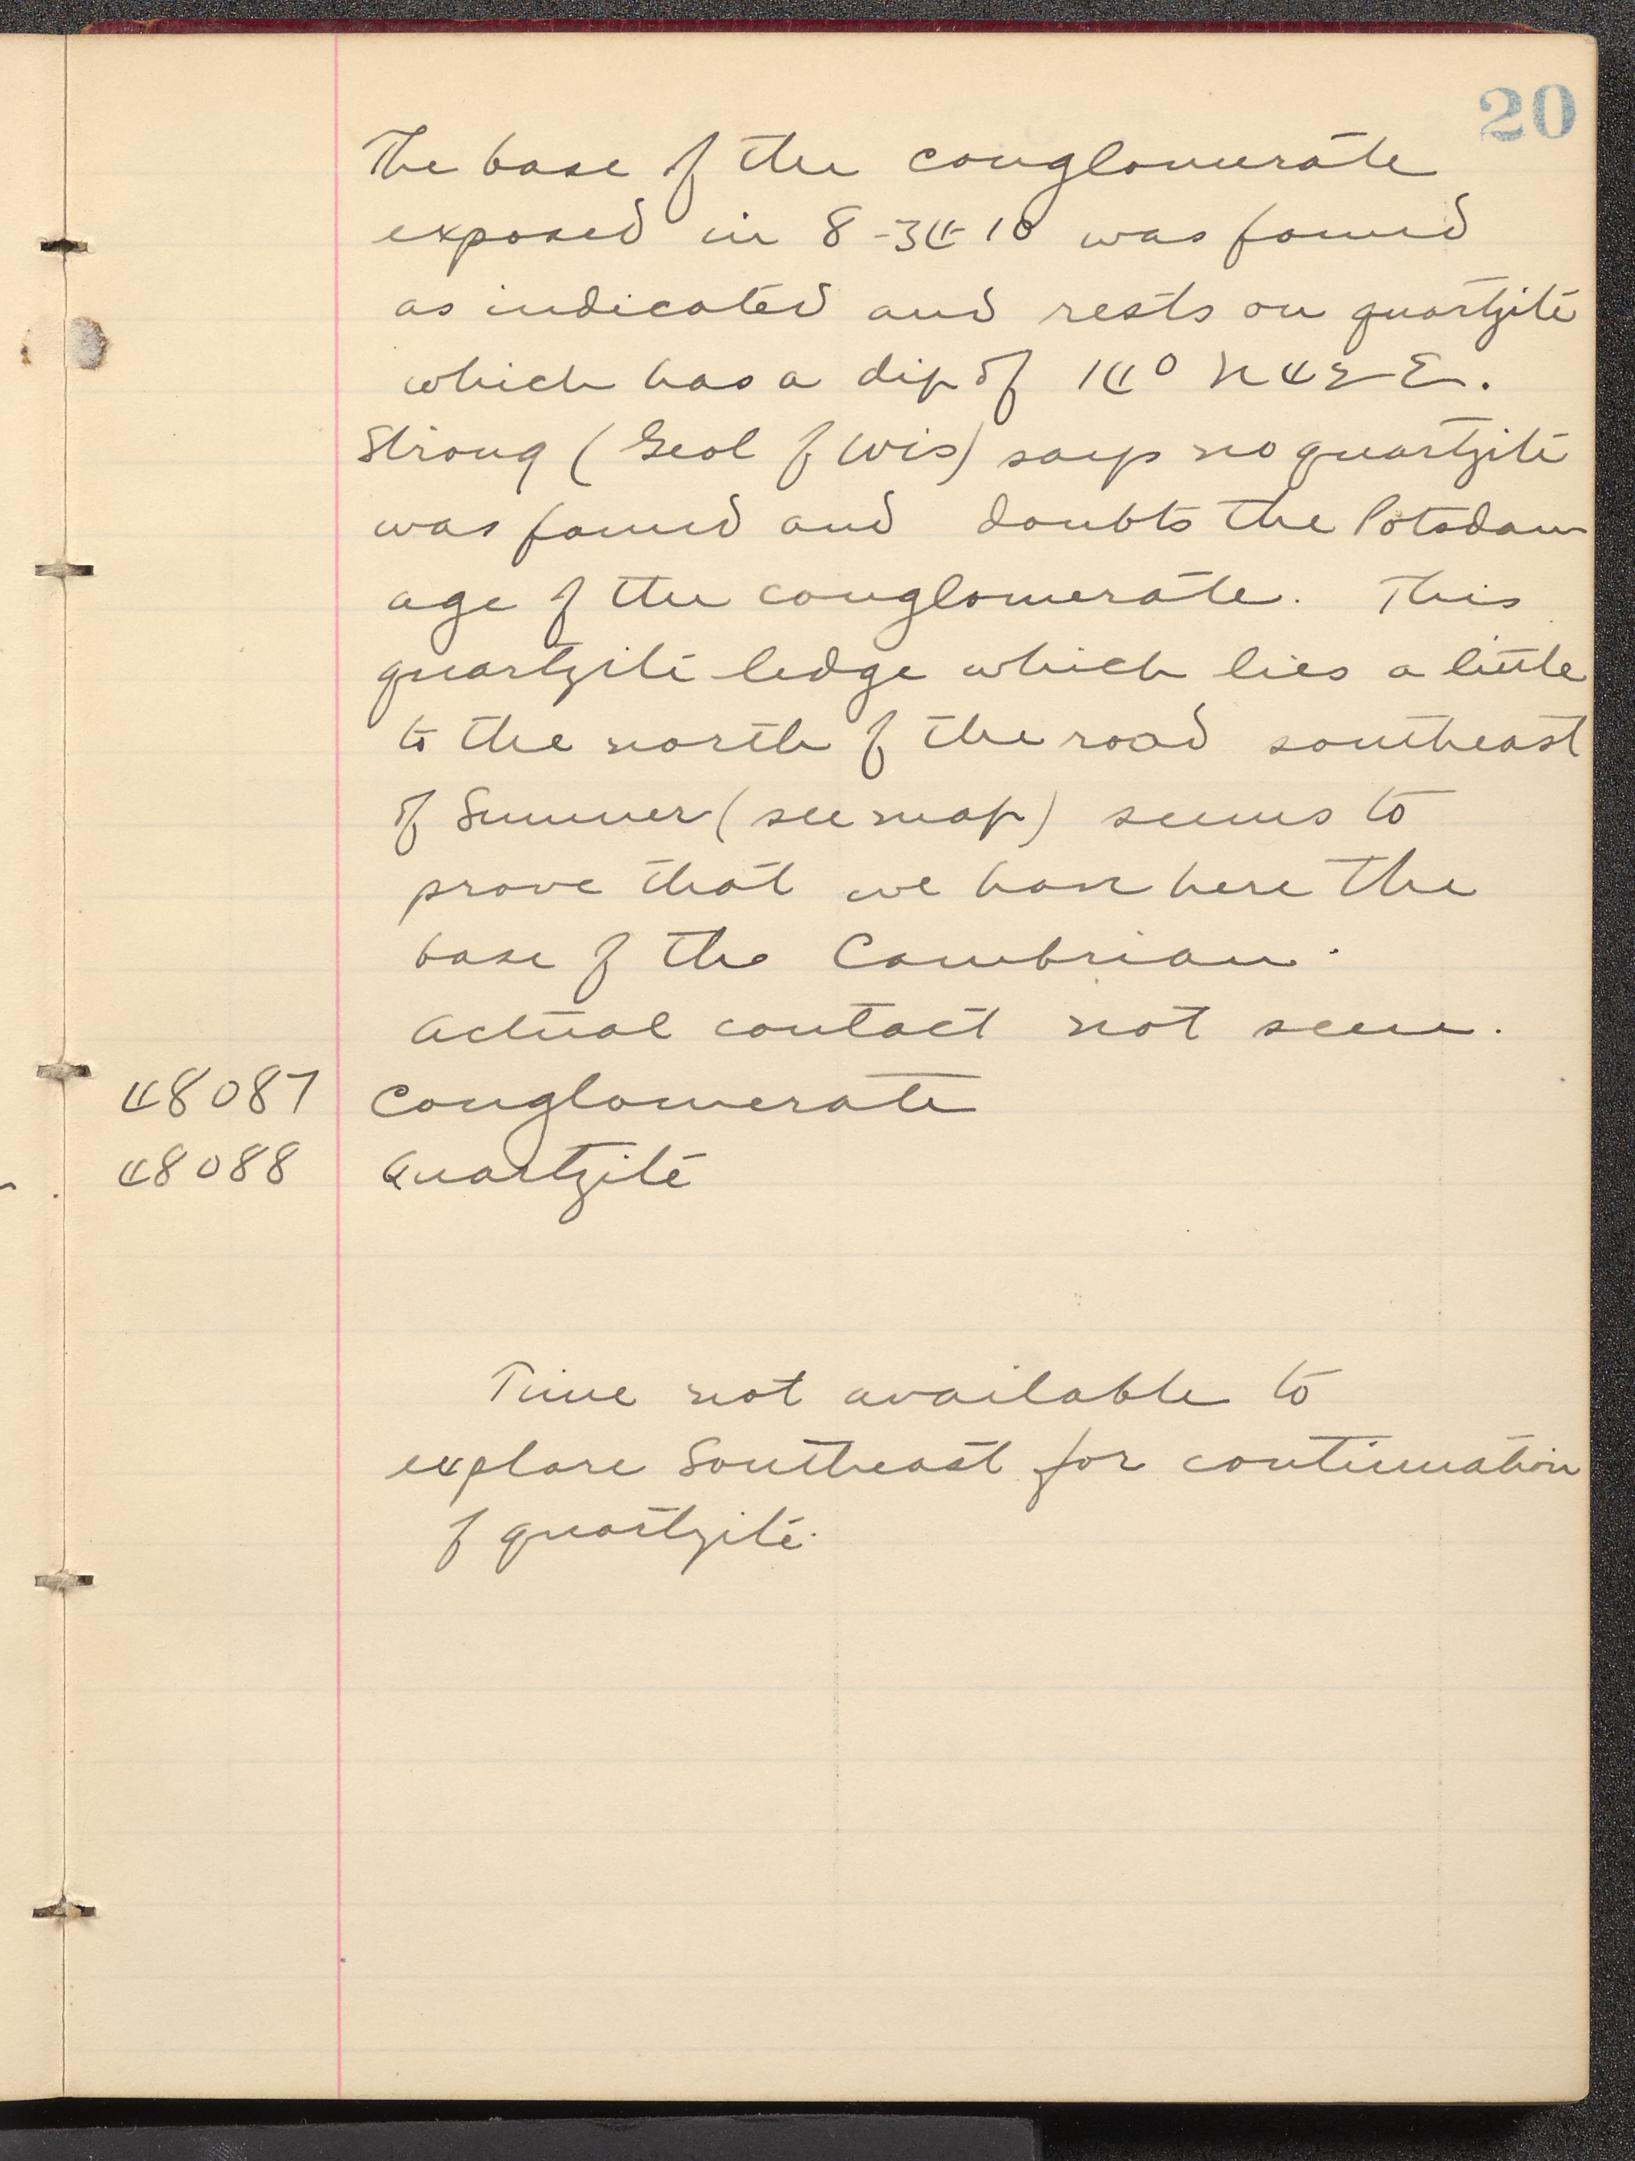 20
The base of the conglomerate
exposed in 8-34-10 was found
as indicated and rests on quartzite
which has a dip of 14° N42E.
Strong (Geol of Wis) says no quartzite
was found and doubts the Potsdam
age of the conglomerate. This
quartzite ledge which lies a little
to the north of the road southeast
of Sumner (see map) seems to
prove that we have here the
base of the Cambrian.
Actual contact not seen.
48087 Conglomerate
48088 Quartzite
Time not available to
explore Southeast for continuation
of quartzite.